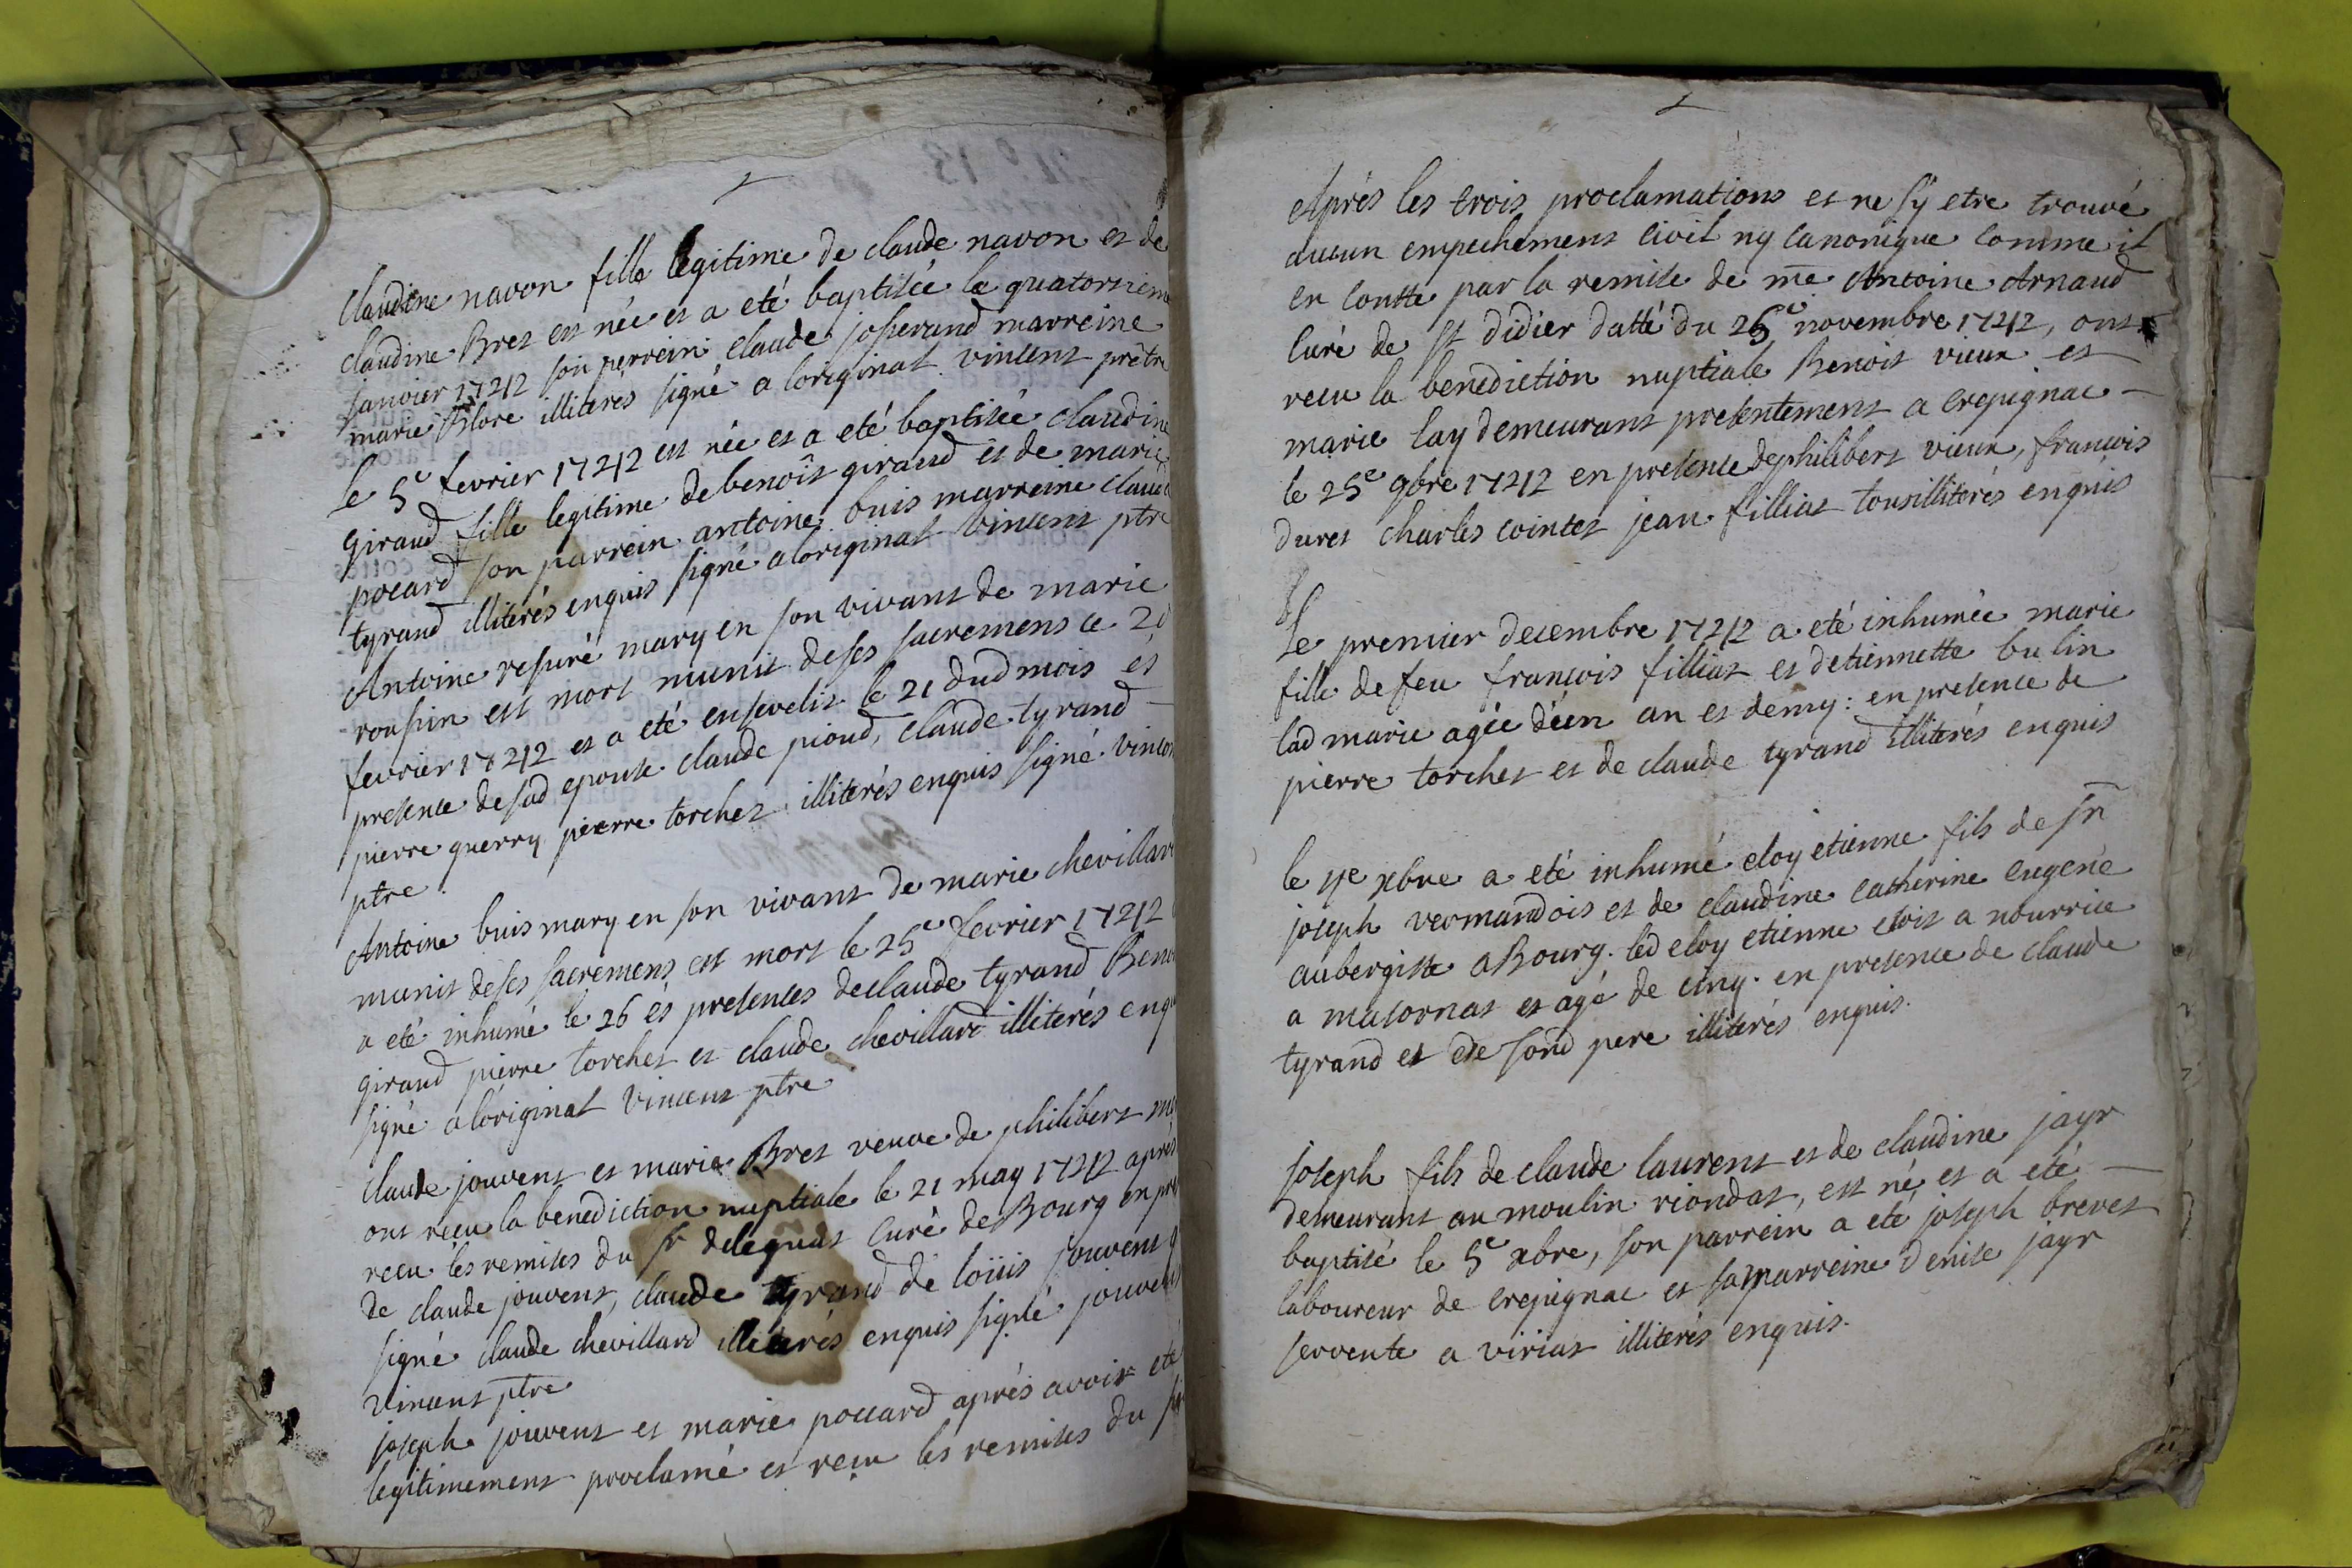 Claudine navon fille legitime de claude navon et de
claudine Bret est née et a eté baptisée le quatorsieme
janvier 1742 son perrein claude josserand marreine
marie flore illiterés signé a loriginal vincent prêtre
le 5e fevrier 1742 est née et a eté baptisée claudine
giraud fille legitime de benoît giraud et de marie
pocard son parrein antoine buis marreine claud
tyrand illiterés enquis signé a loriginal vincent ptre
Antoine resuré mary en son vivant de marie
roussin est mort munit de ses sacremens ce 20
fevrier 1742 et a eté ensevelit le 21 dud mois es
presence de sad epouse claude pioud, claude tyrand
pierre guerry pierre torchet illiterés enquis signé vincen
ptre
Antoine buis mary en son vivant de marie chevillard
munit de ses sacremens est mort le 25e fevrier 1742
a eté inhumé le 26 es presences de claude tyrand Benoi
giraud pierre torchet et claude chevillard illiterés enqu
signé a l'original vincent ptre
Claude jouvent et marie Bret veuve de philibert
ont reçu la benediction nuptiale le 21 may 1742 après
reçu les remises du sr deleguat curé de Bourg en pre
de claude jouvent, claude tyrand de loüis jouvent q
signé claude chevillard illiterés enquis signé jouvent
vincent ptre
joseph jouvent et marie poccard après avoir eté
legitimement proclamé et reçu les remises du sr
Aprés les trois proclamations et ne s'y etre trouvé
aucun empechement civil ny canonique comme il
en conste par la remise de me Antoine Arnaud
curé de st didier datté du 25e novembre 1742, ont
recu la benediction nuptiale Benoit vieux et
marie lay demeurant presentement a crepignac
le 25e 9bre 1742 en presence de philibert vieux, francois
duret charles cointet jean filliat tous illiterés enquis
Le premier decembre 1742 a eté inhumée marie
fille de feu françois filliat et detiennette bulin
lad marie agée d'un an et demy: en presence de
pierre torchet et de claude tyrand illiterés enquis
le 4e xbre a eté inhumé eloy etienne fils de sr
joseph vermandois et de claudine catherine eugene
aubergiste a Bourg. led eloy etienne etoit a nourrice
a majornas et agé de cinq. en presence de claude
tyrand et de sond pere illiterés enquis.
joseph fils de claude laurent et de claudine jayr
demeurant au moulin riondat, est né et a eté
baptisé le 5e xbre, son parrein a eté joseph brevet
laboureur de crepignac et sa marreine denise jayr
servente a viriat illiterés enquis.